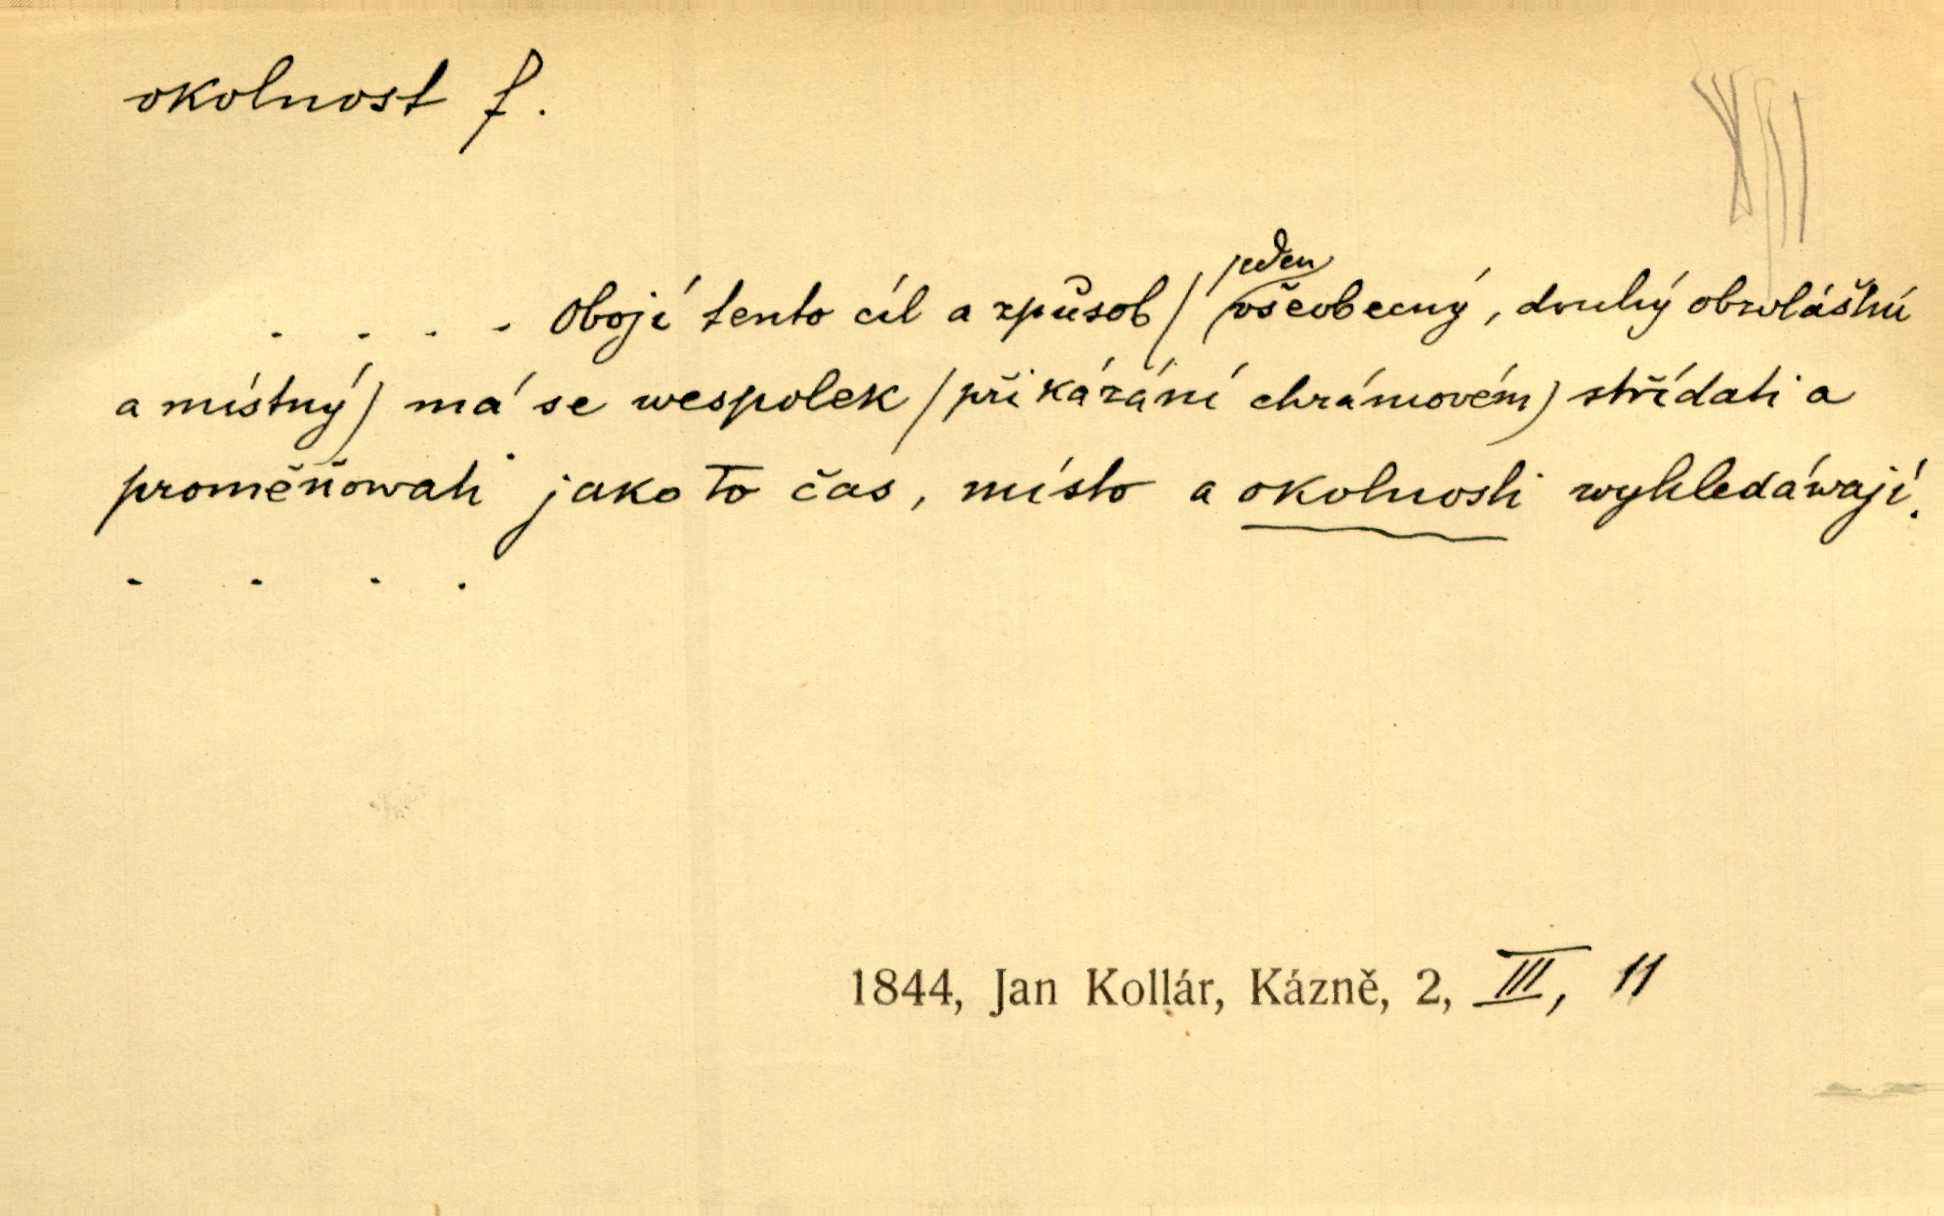 okolnost f.
. . . . Obojí tento cíl a způsob / jeden všeobecný, druhý obzvláštní
a místný) má se wespolek / při kázání chrámovém) střídati a
proměňowati jako to čas, místo a okolnosti wyhledáwají.
. . . .
1844, Jan Kollár, Kázně, 2, III, 11